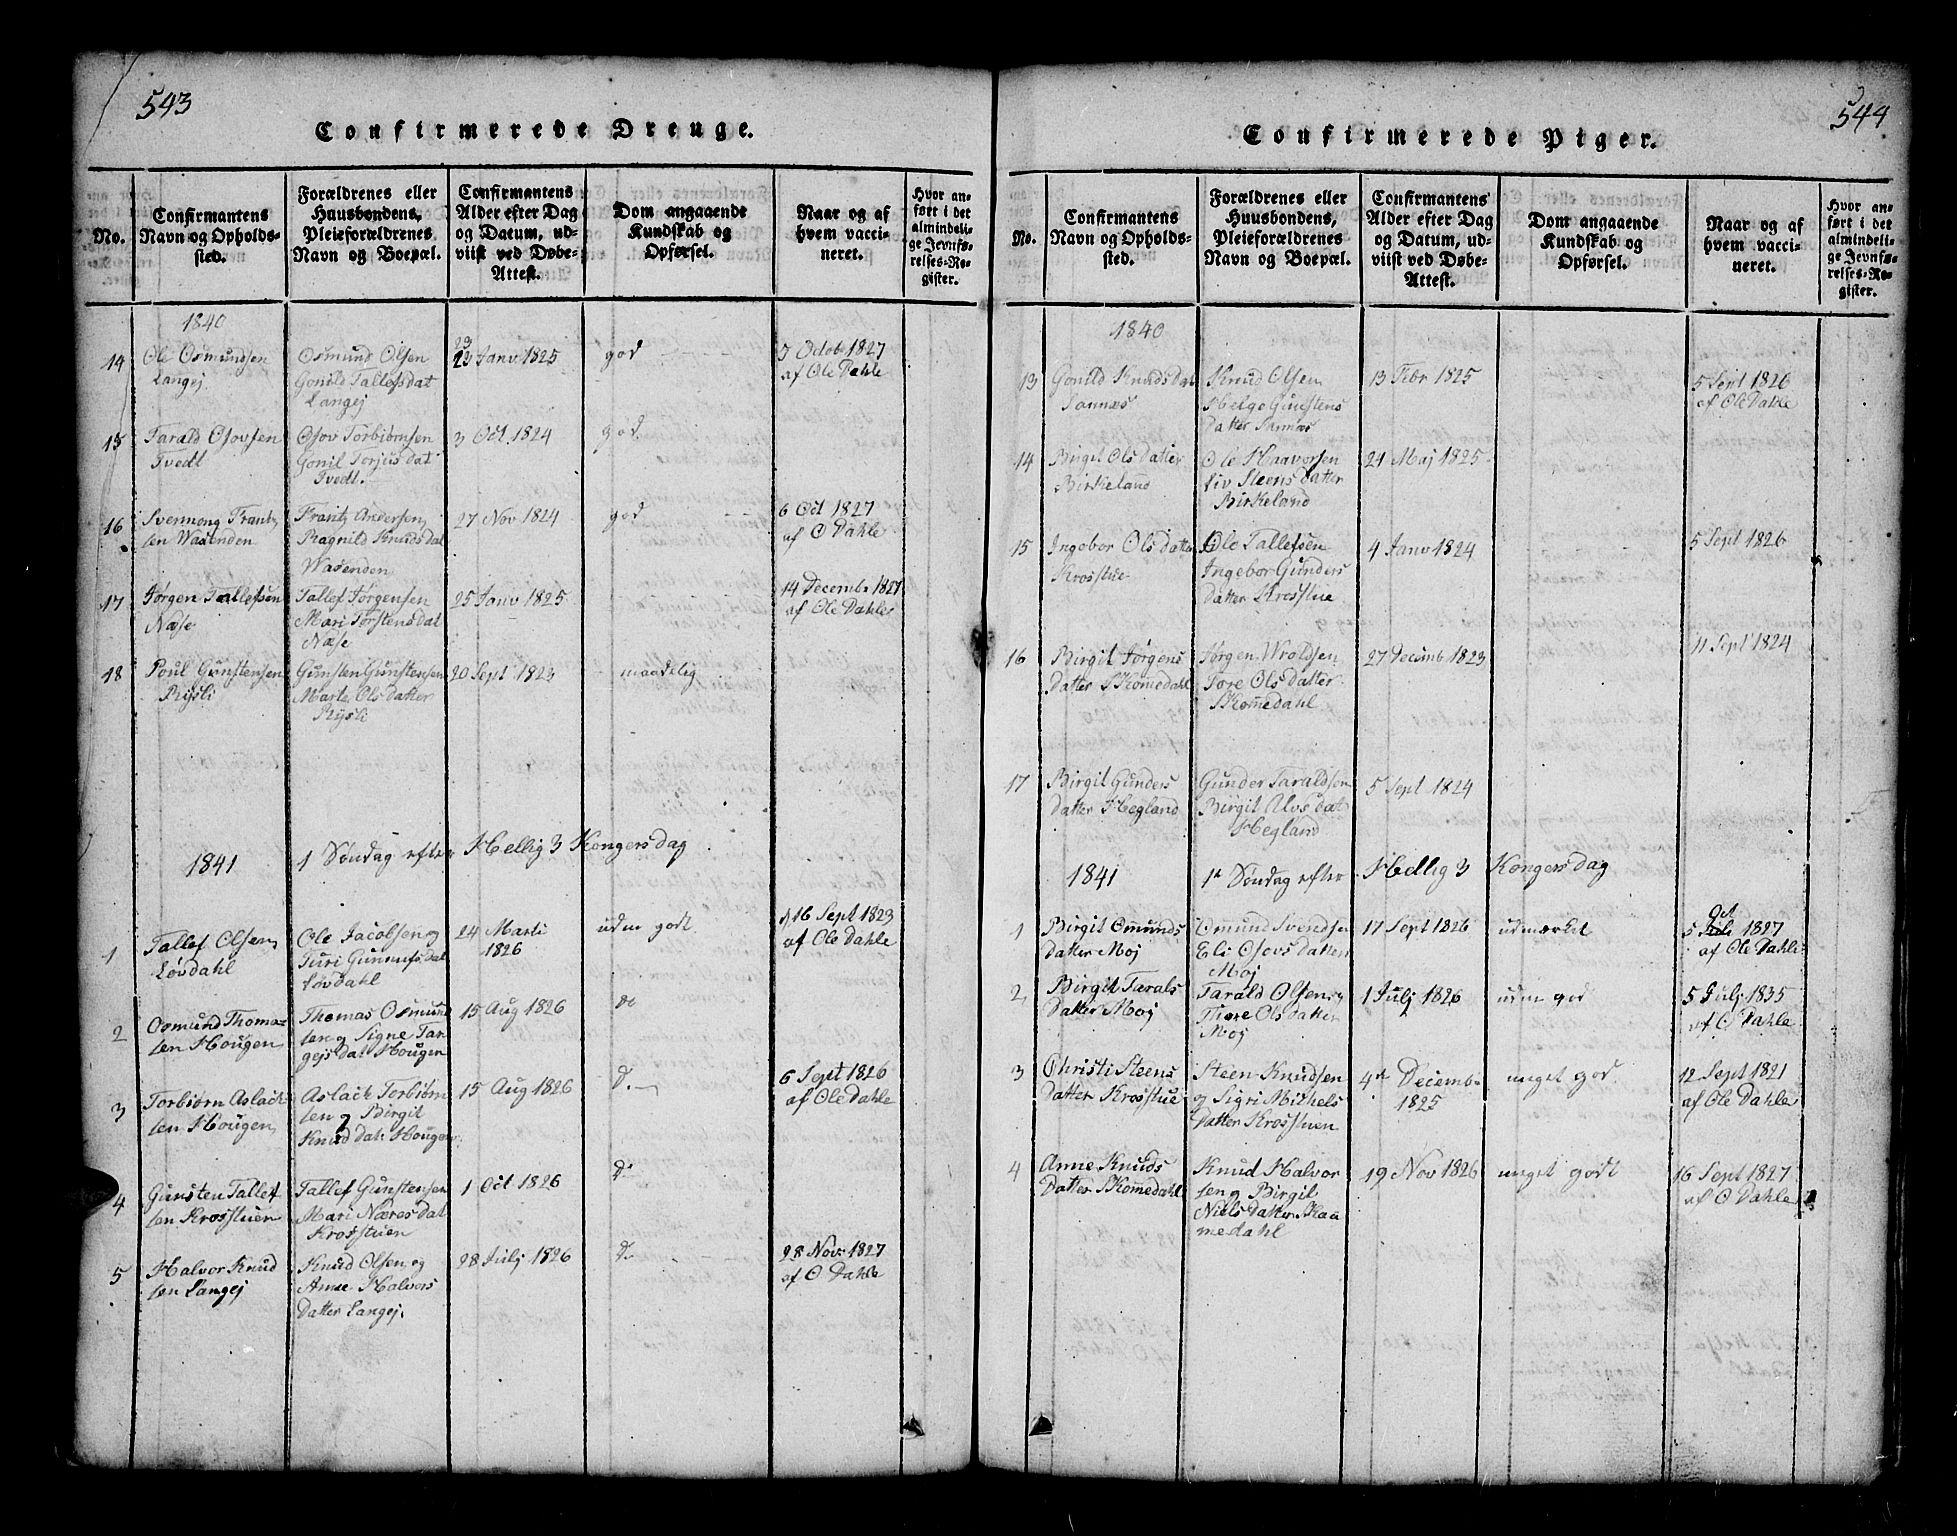 543
Confirmerede Drenge.
No.
Confirmantens
Navn og Opholds-
sted.
Forældrenes eller
Huusbondens,
Pleieforældrenes
Navn og Boepæl.
Confirmantens
Alder efter Dag
og Datum, ud-
viist ved Døbe-
Attest.
Dom angaaende
Kundskab og
Opførsel.
Naar og af
hvem vacci-
neret.
Hvor an-
ført i det
almindeli-
ge Jevnfø-
relses-Re-
gister.
1840
14
Ole Osmundsen
Langej
Osmund Olsen
Gonild Tallefsdat
Langej
23
23 Janv 1825
god
5 Octob 1827
af Ole Dahle
15
Tarald Osovsen
Tvedt
Osov Torbiørnsen
Gonil Torjusdat
Tvedt.
3 Oct. 1824
god
16
Svennong Frants
sen Wasenden
Frants Andersen
Ragnild Knudsdat
Wasenden
27 Nov 1824
god
6 Oct 1827
af O Dahle
17
Jørgen Tallefsen
Næse
Tallef Jørgensen
Mari Torstensdat
Næse
25 Janv 1825
14 Decemb 1827
af Ole Dahle
18
Poul Gunstensen
Rysli
Gunsten Gunstensen
Marte Olsdatter
Rysli
20 Sept 1823
maadelig
1841
1 Søndag efter Hellig 3 Kongersdag
1
Tallef Olsen
Løvdahl
Ole Jacobsen og
Turi Gunufsdat
Løvdahl
24 Marti
1826
uden godt
16 Sept 1823
af Ole Dahle
2
Osmund Thoma-
sen Hougen
Thomas Osmund
sen og Signe Tar
gejsdat Hougen
15 Aug 1826
do
3
Torbiørn Aslach
sen Hougen
Aslach Torbiørn
sen og Birgit
Knud dat. Hougen
15 Aug 1826
D.
6 Sept 1826
af Ole Dahle
4
Gunsten Tallef
sen Krosstuen
Tallef Gunstensen
Mari Næresdat
Krosstuen
1 Oct 1826
D.
5
Halvor Knud
sen Langej
Knud Olsen og
Anne Halvors
Datter Langej.
28 Julj 1826
D.
28 Nov. 1827
af O Dahle
544
Confirmerede Piger.
No.
Confirmantens
Navn og Opholds-
sted.
Forældrenes eller
Huusbondens,
Pleieforældrenes
Navn og Boepæl.
Confirmantens
Alder efter Dag
og Datum, ud-
viist ved Døbe-
Attest.
Dom angaaende
Kundskab og
Opførsel.
Naar og af
hvem vacci-
neret.
Hvor an-
ført i det
almindeli-
ge Jevnfø-
relses-Re-
gister.
1840
13
Gonild Knudsdat
Sannæs
Knud Olsen
Helge Gunstens
Datter Sannæs
13 Febr 1825
5 Sept 1826
af Ole Dahle
14
Birgit Ols Datter
Birkeland
Ole Haavorsen
Liv Steens Datter
Birkeland
21 Maj 1825
15
Ingebor Olsdatter
Krosstue
Ole Tallefsen
Ingebor Gunders
Datter Krosstue
4 Janv 1824
5 Sept 1826
16
Birgit Jørgens
Datter Skomedahl
Jørgen Wroldsen
Tore Olsdatter
Skomedahl
27 Decemb 1823
11 Sept 1824
17
Birgit Gunders
Datter Hegland
Gunder Taraldsen
Birgit Alvsdat
Hegland
5 Sept 1824
1841
1ste Søndag efter Hellig 3 Kongersdag
1
Birgit Omunds
Datter Moj
Omund Svendsen
Eli Osovs Datter
Moj
17 Sept 1826
udmærket
Oct
5 Juli 1827
af Ole Dahle
2
Birgit Tarals
Datter Moj
Tarald Olsen og
Tore Olsdatter
Moj
1 Julj 1826
uden god
5 Julj 1835
af O Dahle
3
Christi Steens
Datter Krosstue
Steen Knudsen
og Sigri Michels
Datter Krosstuen
4de Decemb
1825
meget god
12 Sept 1821
af Ole Dahle
4
Anne Knuds
Datter Skomedahl
Knud Halvor
sen og Birgit
Niels Datter Skaa
medahl
19 Nov 1826
meget godt
16 Sept 1827
af O Dahle